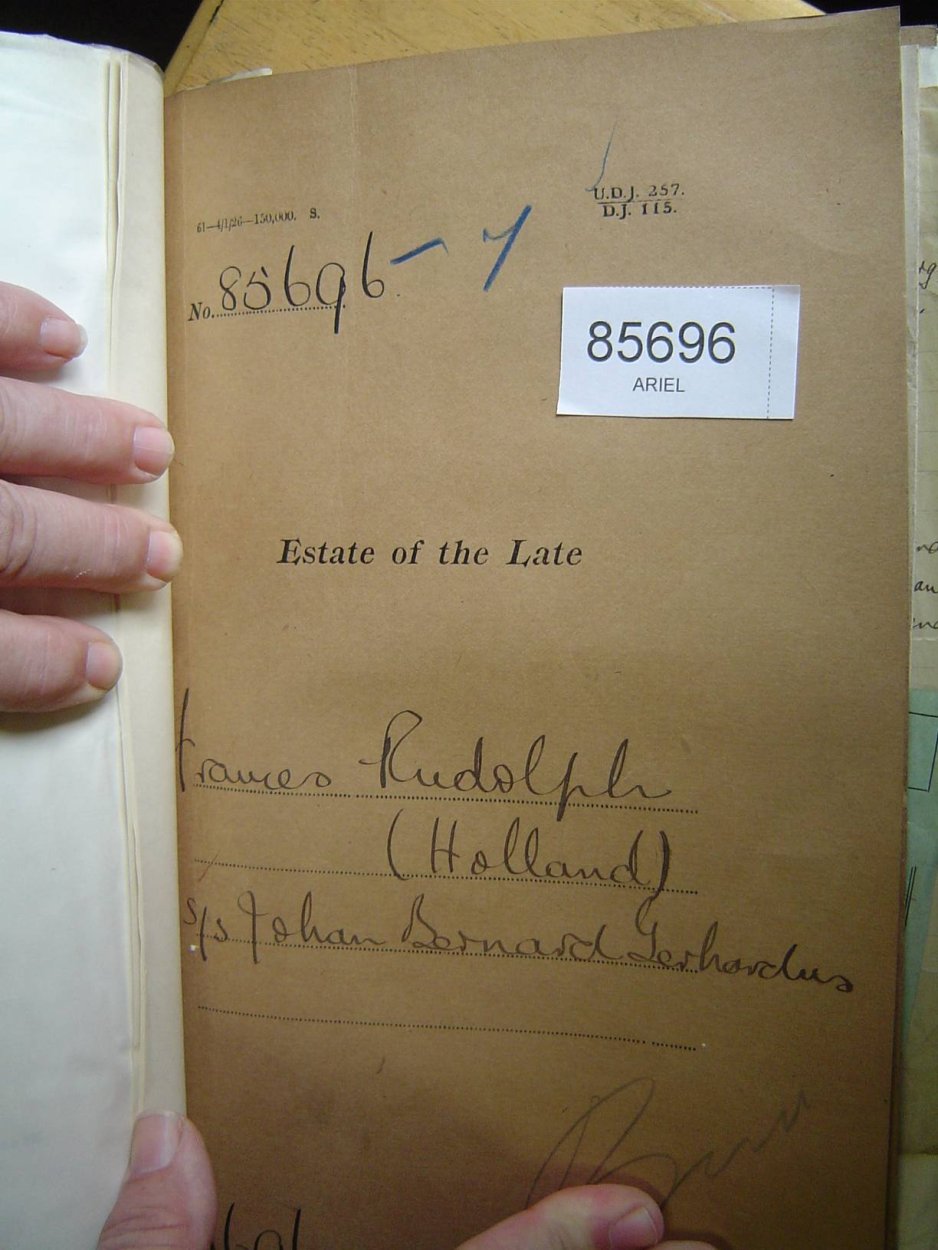 U.D.J. 257.
D.J. 115.
61—4/1/26—150,000. S.
No. 85696 – y
85696
ARIEL
Estate of the Late
Frances Rudolph
(Holland)
s/s Johan Bernard Gerhardus